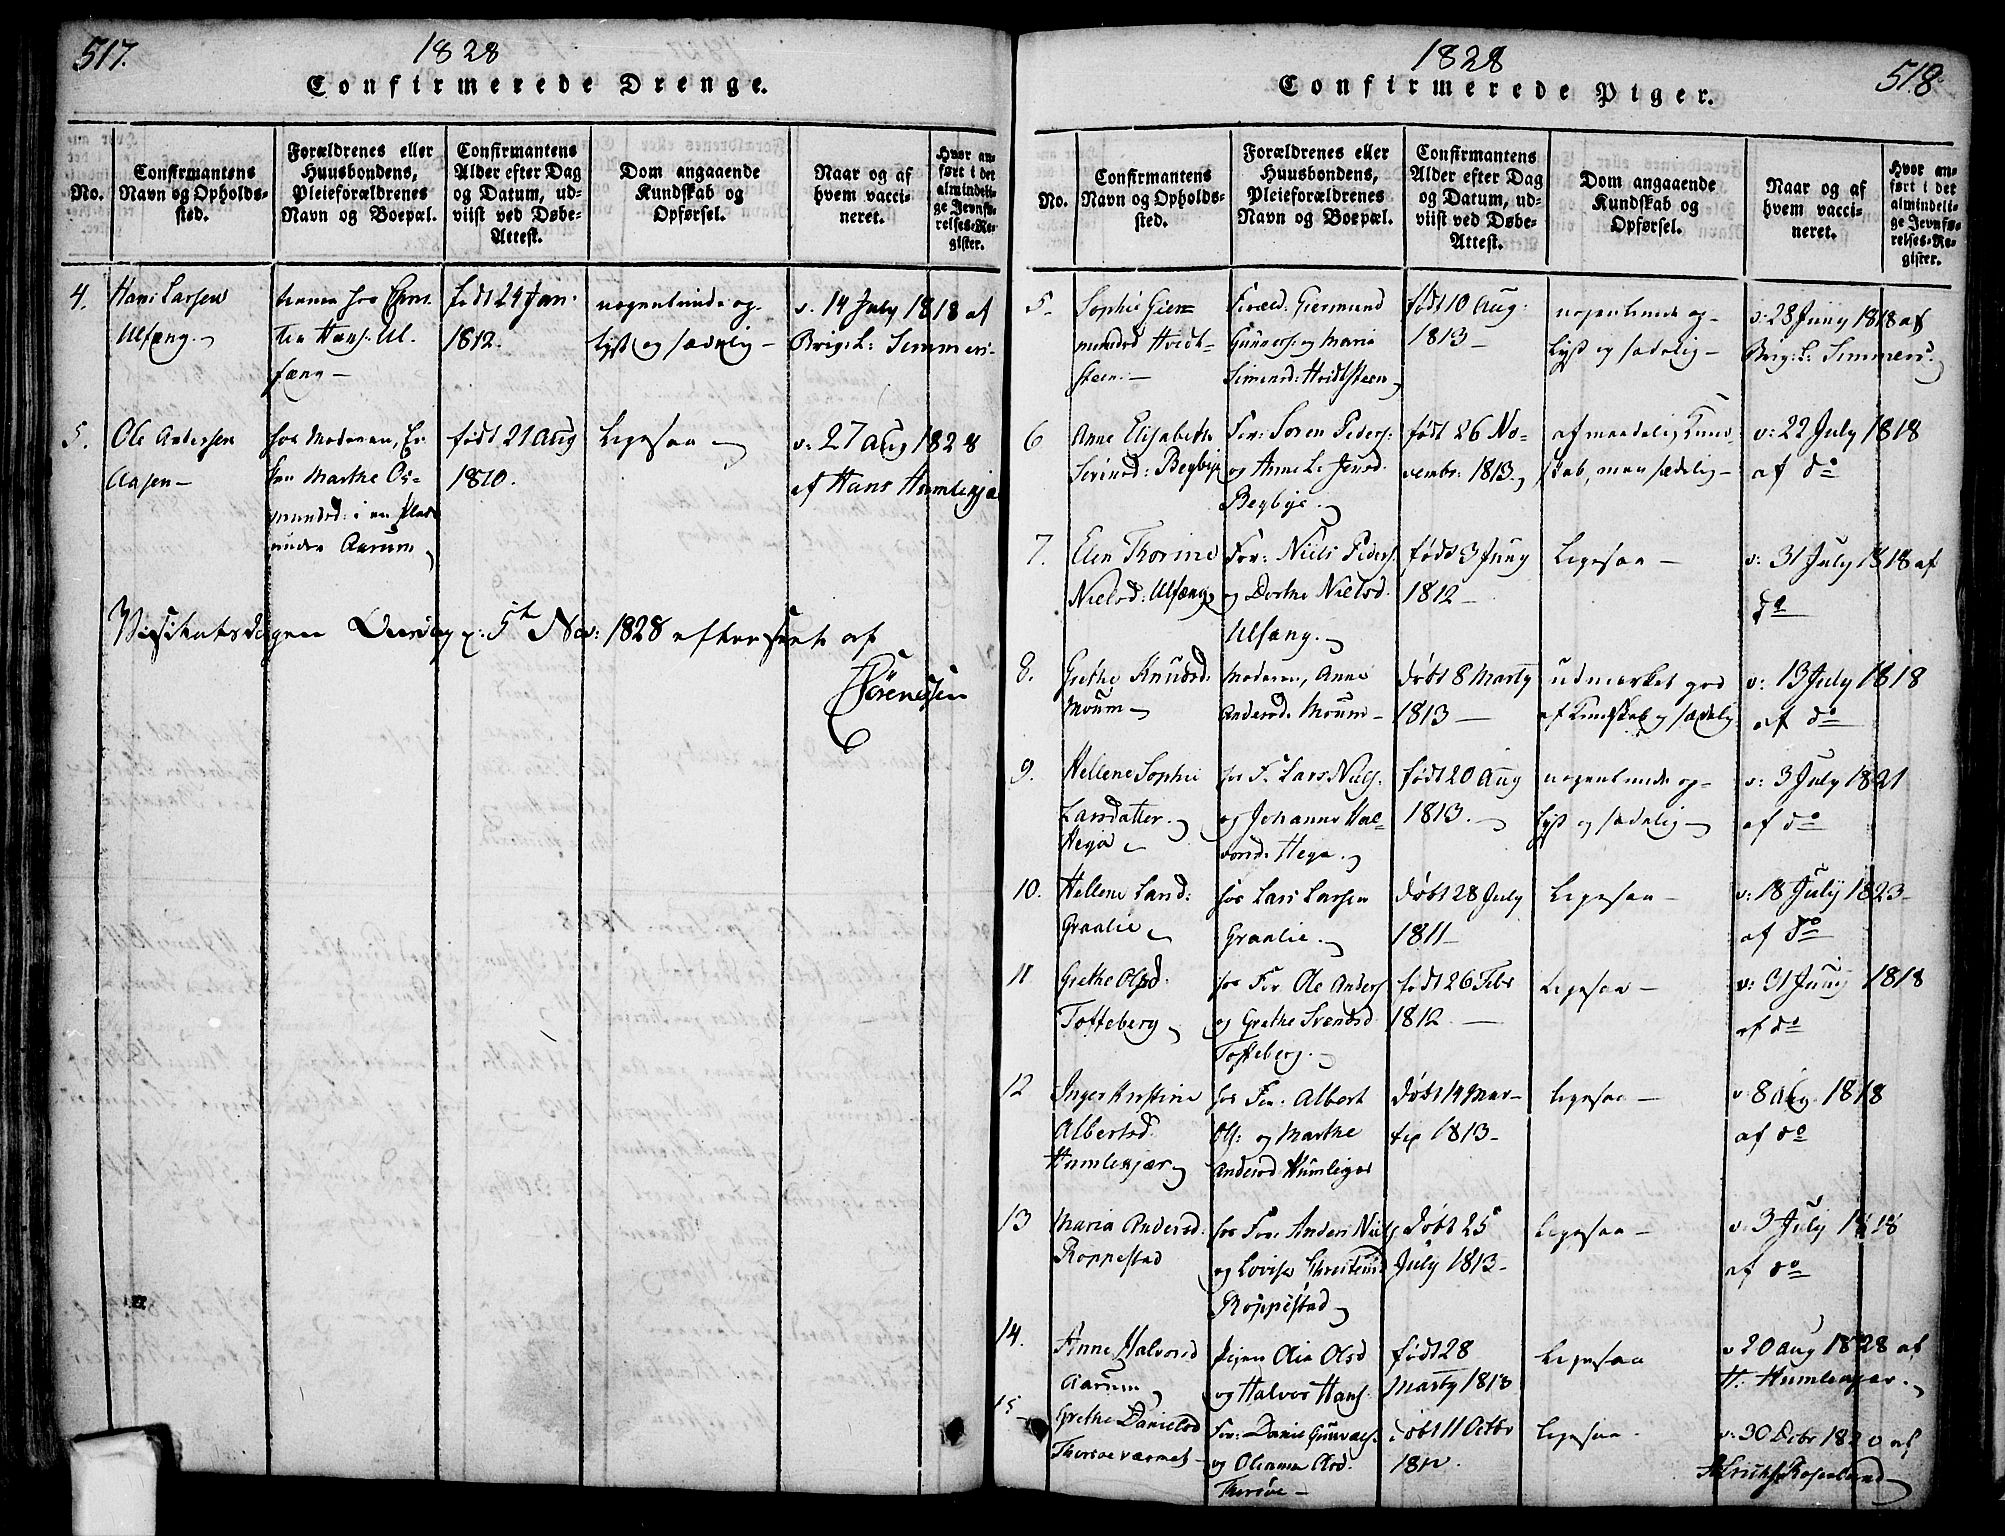 517.
1828
Confirmerede Drenge.
No.
Confirmantens
Navn og Opholds-
sted.
Forældrenes eller
Huusbondens,
Pleieforældrenes
Navn og Boepæl.
Confirmantens
Alder efter Dag
og Datum, ud-
viist ved Døbe-
Attest.
Dom angaaende
Kundskab og
Opførsel.
Naar og af
hvem vacci-
neret.
Hvor an-
ført i det
almindeli-
ge Jevnfø-
relses-Re-
gister.
4.
Hans Larsen
Ulfæng
hos
Hans: Ul-
fæng
født 24 Jan.
1812.
nogenlunde op-
lyst og sædelig
v. 14 July 1818 af
Brig: L: Simmers:
5.
Ole Andersen
Aasen
hos Moderen, En-
ken Marthe Os-
mundsd: i en Plads
under Aarum
født 21 Aug
1810.
Ligesaa
v. 27 Aug 1828
af Hans Humlekjær
Visitatsdagen 5t Nov: 1828 efterseet af
Sørenssen
1828
518
Confirmerede Piger.
No.
Confirmantens
Navn og Opholds-
sted.
Forældrenes eller
Huusbondens,
Pleieforældrenes
Navn og Boepæl.
Confirmantens
Alder efter Dag
og Datum, ud-
viist ved Døbe-
Attest.
Dom angaaende
Kundskab og
Opførsel.
Naar og af
hvem vacci-
neret.
Hvor an-
ført i det
almindeli-
ge Jevnfø-
relses-Re-
gister.
5.
Sophie Gier-
mundsd Hvidt-
steen
Foræld. Giermund
Gunders: og Maria
Simensd: Hvidtsteen
født 10 Aug:
1813
nogenlunde op-
lyst og sædelig
v: 28 Juny 1818 af
Brig: L: Simmers:
6
Anne Elisabeth
Sørensd: Begbye
For: Søren Peders:
og Anne L. Jensd:
Begbye.
født 26 No-
vembr: 1813.
af maadelig Kund-
skab, men sædelig
v: 22 July 1818
af do
7.
Elen Thorine
Nielsd: Ulfæng
For: Niels Peders:
og Dorthe Nielsd.
Ulfæng.
født 3 Juny
1812
Ligesaa
v: 31 July 1818 af
do
8.
Grethe Knudsd:
Moum
Moderen, Anne
Andersd: Moum
døbt 8 Marty
1813
udmærket god
af Kundskab og sædelig
v: 13 July 1818
af do
9.
Hellene Sophie
Larsdatter
Heyja
hos F. Lars Niels:
og Johanne Hal-
vorsd: Heya.
født 20 Aug
1813.
nogenlunde op-
lyst og sædelig
v: 3 July 1821
af do
10.
Hellene Larsd:
Graalie
hos Lars Larsen
Graalie.
døbt 28 July
1811
Ligesaa
v: 18 July 1823
af do
11
Grethe Olsd.
Tofteberg
hos For Ole Anders:
og Grethe Svendsd
Tofteberg.
født 26 Febr
1812.
Ligesaa
v: 31 Juny 1818
af do
12
Inger Kirstine
Albertsd.
Humlekjær
hos For: Albert
Ols: og Marthe
Andersd Humlegær
døbt 14 Mar-
tij 1813
Ligesaa
v. 8 Aug 1818
af do
13
Maria Andersd.
Roppestad
hos For: Anders Niels:
og Lovise Christensd
Roppestad
døbt 25
July 1813
Ligesaa
v. 3 July 1818
af do
14.
Anne Halvorsd
Aarum
Pigen Olea Olsd
og Halvor Hans:
født 28
Marty 1813
Ligesaa
v 20 Aug 1828 af
H. Humlegær.
15
Grethe Danielsd
For: Daniel
og Oleanna Olsd.
Thorsøe
døbt 11 Octbr
1812.
Ligesaa
v: 30 Octbr 1820 af